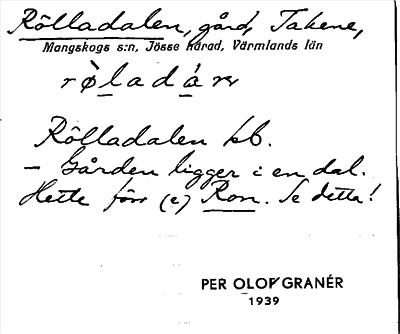 Rölladalen, gård, Takene,
Mangskogs s:n, Jösse härad, Värmlands län
Rölladalen kb.
– Gården ligger i en dal.
Hette förr (e) Ron. Se detta!
PER OLOF GRANÉR
1939